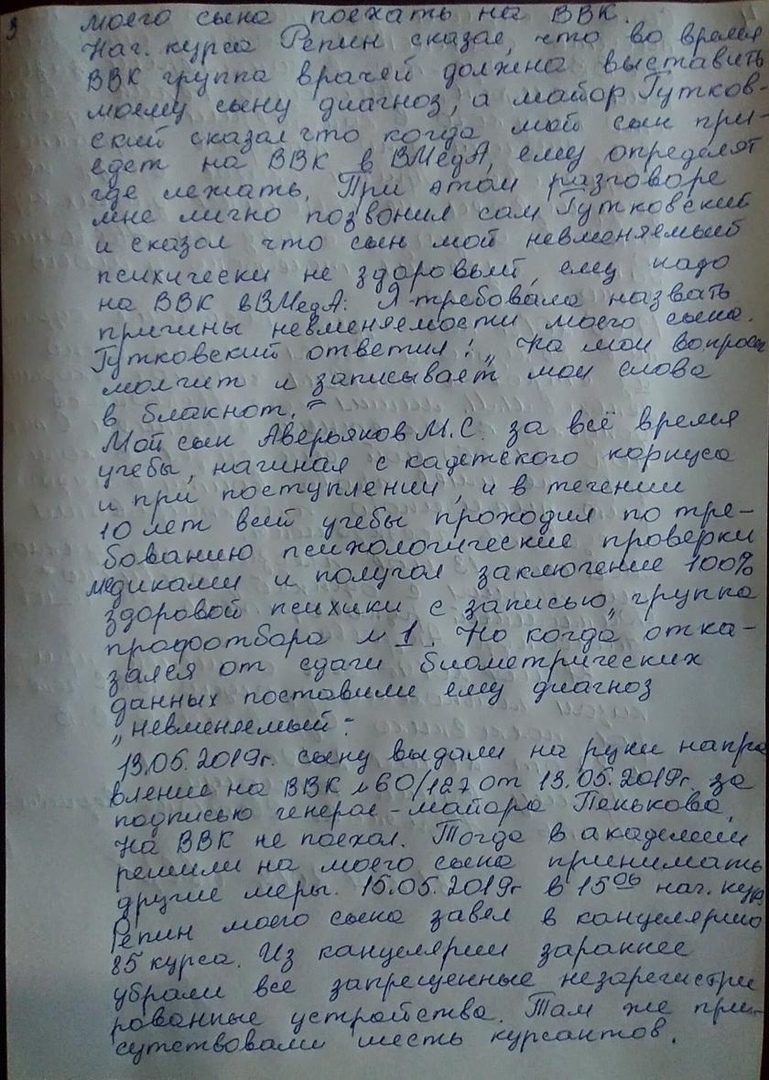 3
моего сына поехать на ВВК.
Нач. курса Репин сказал, что во время
ВВК группа врачей должна выставить
моему сыну диагноз, а майор Гутков-
ский сказал что когда мой сын при-
едет на ВВК в ВМедА, ему определят
где лежать. При этом разговоре
мне лично позвонил сам Гутковский
и сказал что сын мой невменяемый
психически не здоровый, ему надо
на ВВК вВМедА. Я требовала назвать
причины невменяемости моего сына.
Гутковский ответил: „На мои вопросы
молчит и записывает мои слова
в блакнот."
Мой сын Аверьяков М.С. за всё время
учебы, начиная с кадетского корпуса
и при поступлении, и в течении
10 лет всей учебы проходил по тре-
бованию психологические проверки
медиками и получал заключение 100%
здоровой психики с записью „группа
профотбора №1. Но когда отка-
зался от сдачи биометрических
данных поставили ему диагноз
„невменяемый".
13.05.2019г. сыну выдали на руки напра
вление на ВВК №60/127 от 13.05.2019г. за
подписью генерал-майора Пенькова.
На ВВК не поехал. Тогда в академии
решили на моего сына принимать
другие меры. 15.05.2019г в 15 06 нач. курс.
Репин моего сына завел в канцелярию
85 курса. Из канцелярии зараннее
убрали все запрещенные незарегистри
рованные устройства. Там же при-
сутствовали шесть курсантов.